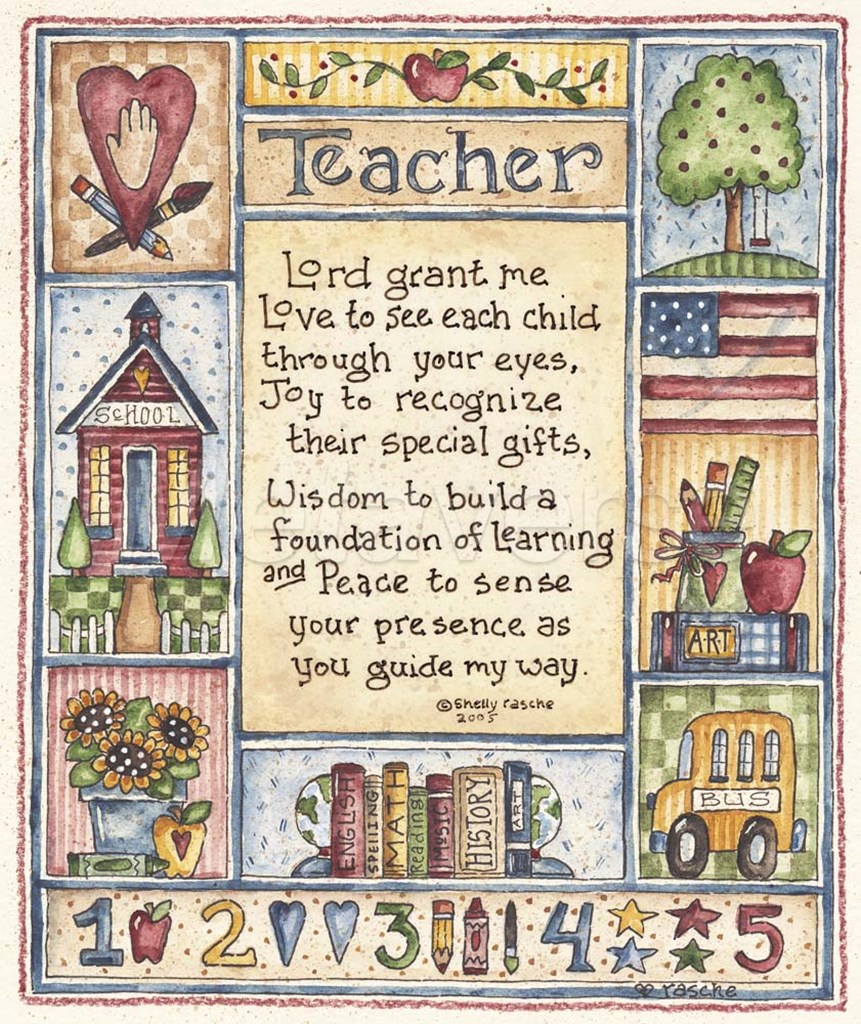 Teacher
Lord grant me
Love to see each child
through your eyes,
Joy to recognize
their special gifts,
Wisdom to build a
foundation of learning
and Peace to sense
your presence as
you guide my way.
©Shelly rasche
2005
SCHOOL
ART
BUS
ENGLISH
SPElliNG
MATH
Reading
MUSIC
HISTORY
ART
1 2 3 4 5
rasche